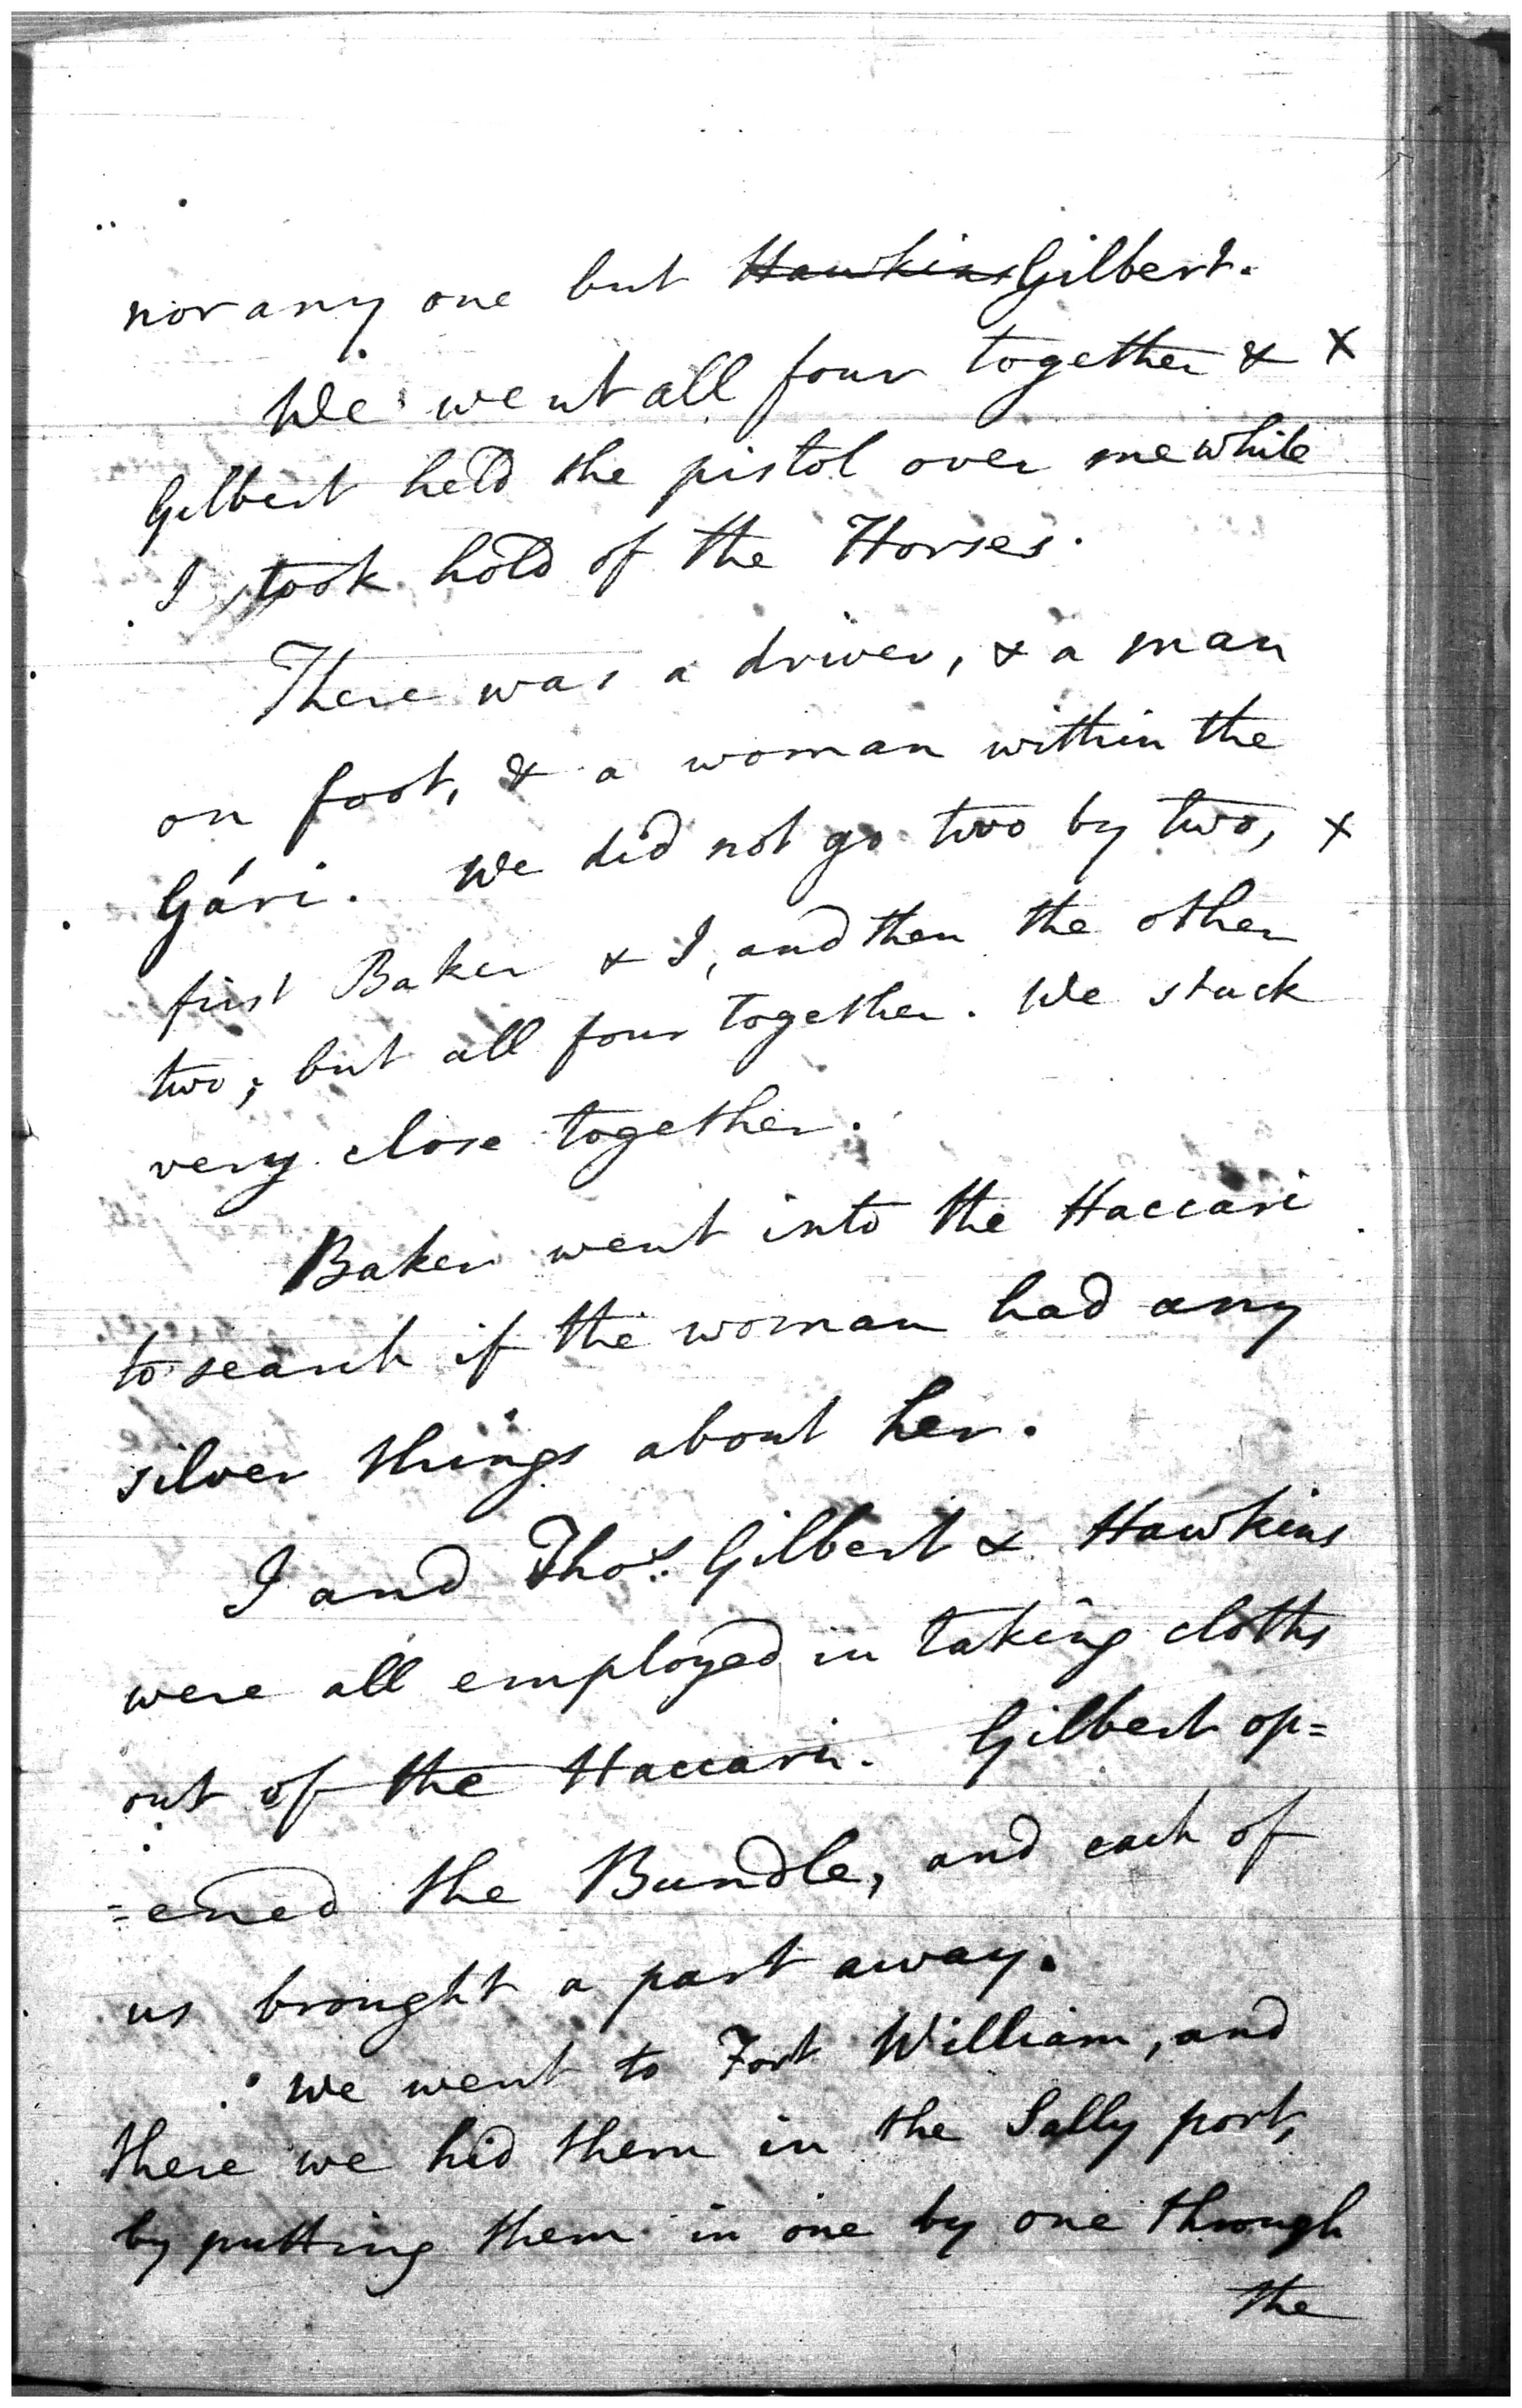 nor any one but Hawkins Gilbert.
We went all four together & X
Gilbert held the pistol over me while
I took hold of the Horses.
There was a driver, & a man
on foot, & a woman within the
Gári. We did not go two by two, X
first Baker & I, and then the other
two; but all four together. We stuck
very close together.
Baker went into the Haccari
to search if the woman had any
silver things about her.
I and Thos. Gilbert & Hawkins
were all employed in taking cloths
out of the Haccari. Gilbert op=
=ened the Bundle, and each of
us brought a part away.
We went to Fort William, and
there we hid them in the Sally port,
by putting them in one by one through
the